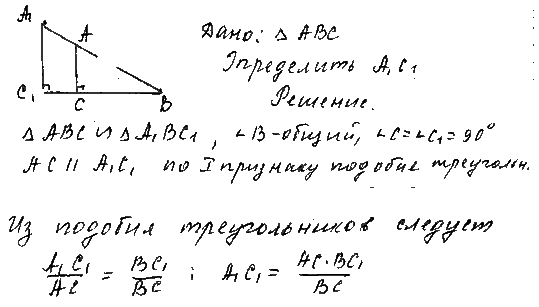 A₁
A
C₁
C
B
Дано: Δ ABC
Определить A₁C₁
Решение.
Δ ABC и Δ A₁BC₁, ∠B-общий, ∠C=∠C₁=90°
AC || A₁C₁ по I признаку подобие треугольн.
Из подобия треугольников следует
A₁C₁/AC = BC₁/BC ; A₁C₁ = AC·BC₁/BC